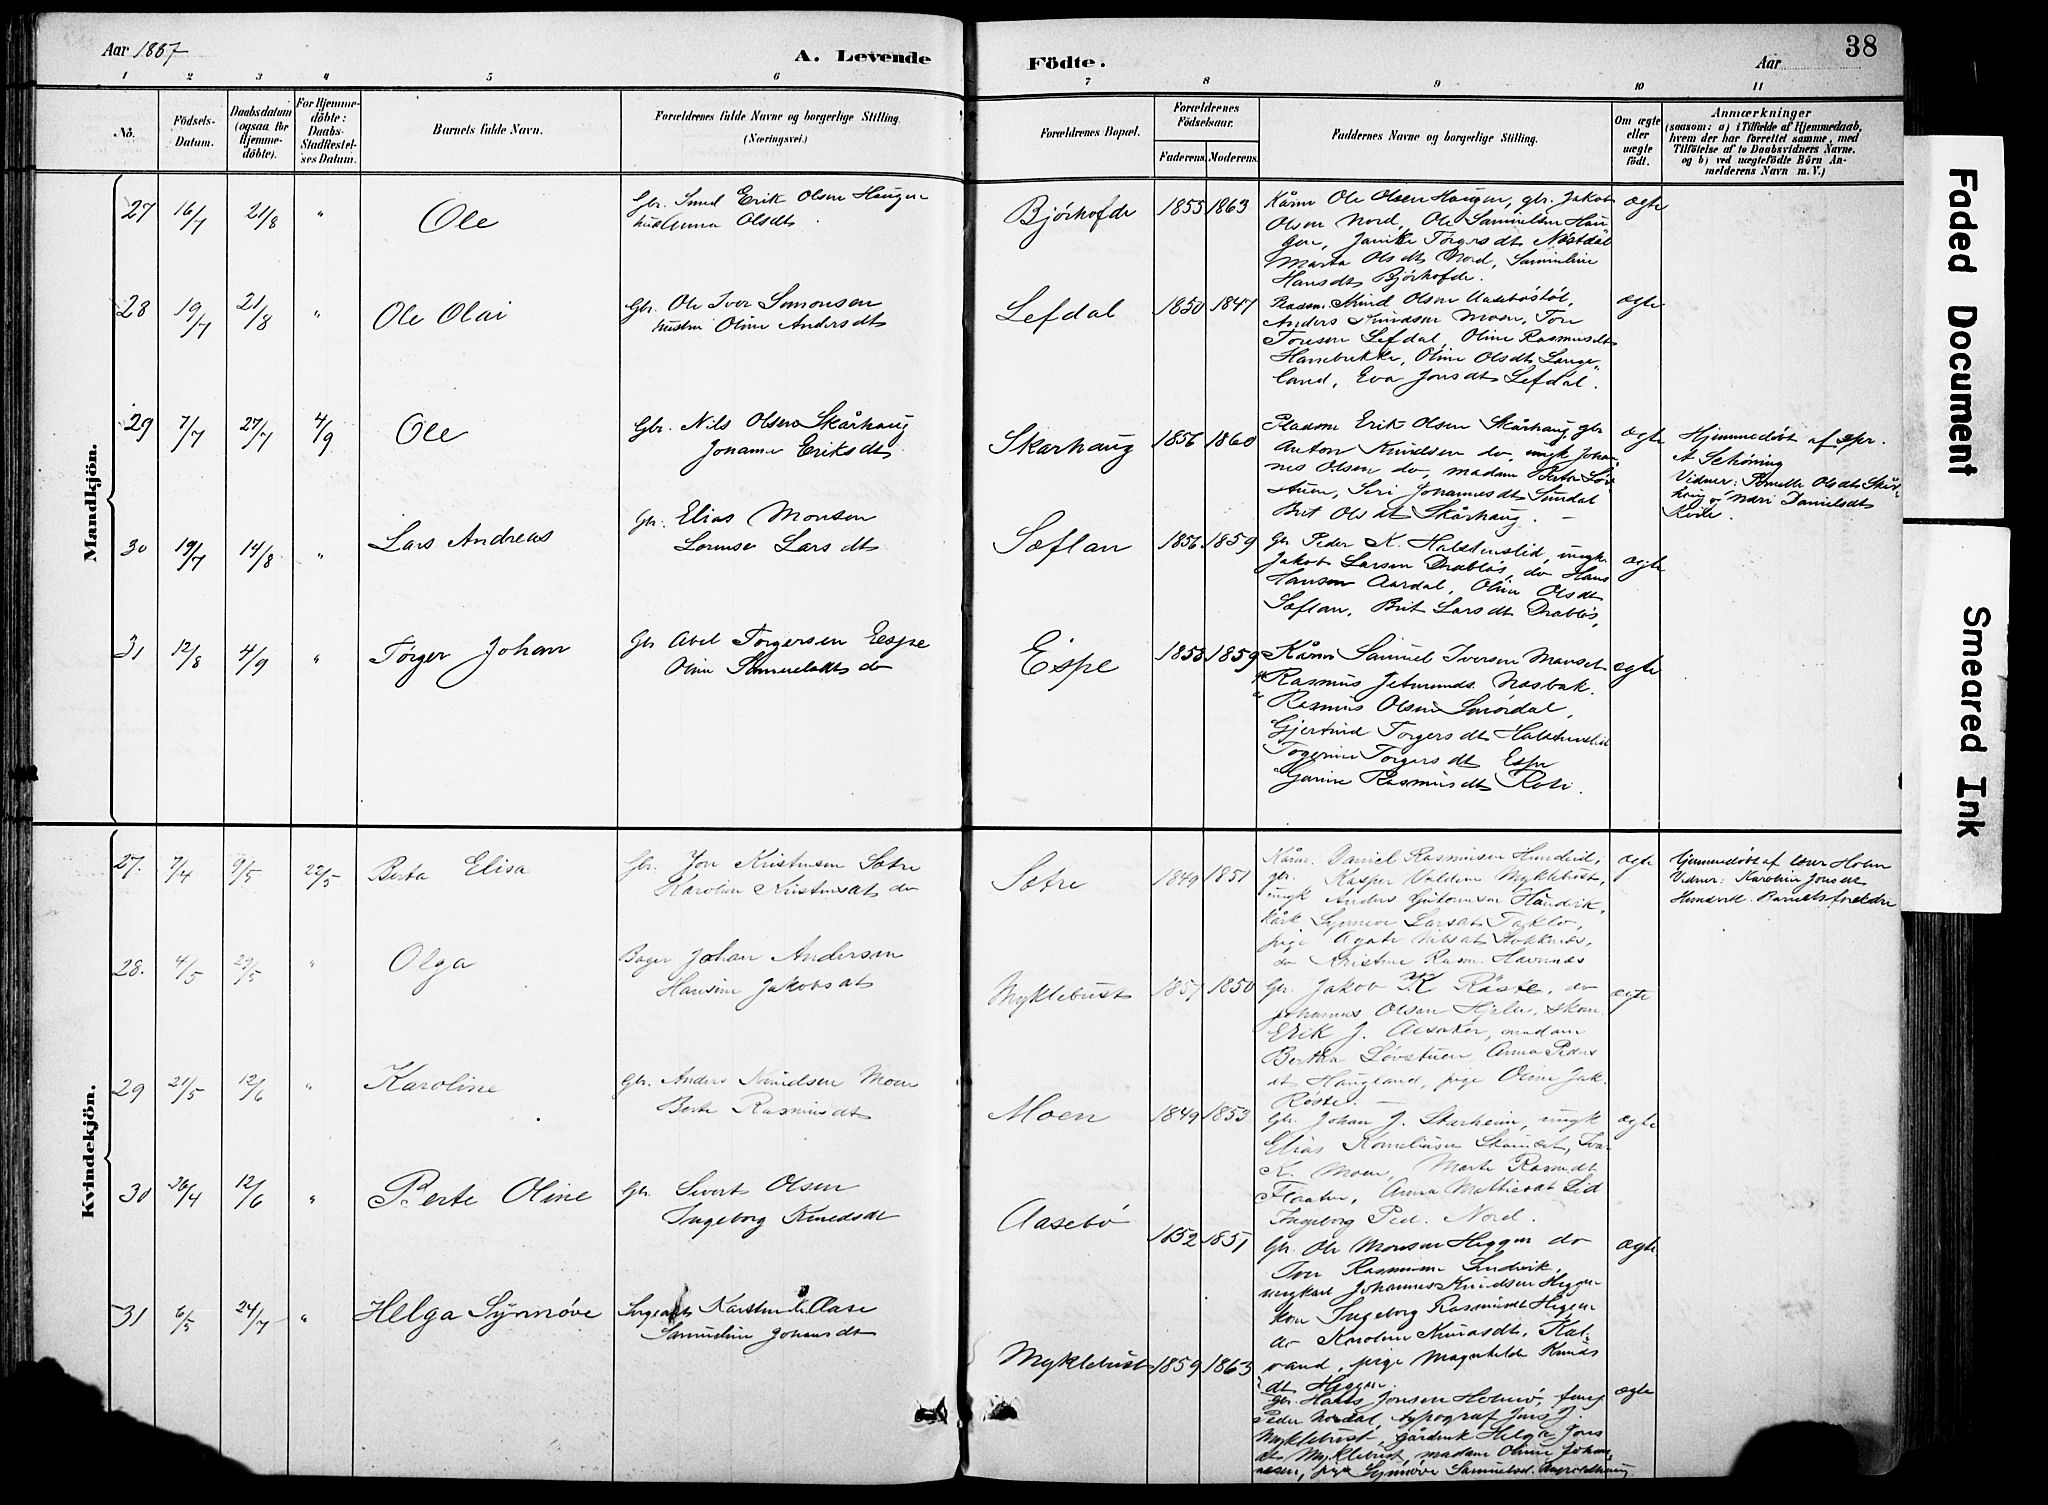 Aar 1887
A. Levende
Födte.
Aar
38
1 2 3 4 5 6 7 8 9 10 11
No.
Födsels-
Datum.
Daabsdatum
(ogsaa for
Hjemme-
döbte).
For Hjemme-
döbte:
Daabs-
Stadfæstel-
ses Datum.
Barnets fulde Navn.
Forældrenes fulde Navne og borgerlige Stilling.
(Næringsvei.)
Forældrenes Bopæl.
Forældrenes
Födselsaar.
Faderens. Moderens.
Faddernes Navne og borgerlige Stilling.
Om ægte
eller
uægte
födt.
Anmærkninger
(saasom: a) i Tilfælde af Hjemmedaab,
hvem der har forrettet samme, med
Tilföielse af to Daabsvidners Navne.
og b) ved uægtefödte Börn An-
melderens Navn m. V.)
Mandkjön.
27 16/7 21/8 " Ole
Gbr. Smed Erik Olsen Haugen
Anna Olsdt
Bjørhofde 1855 1863
Kårm Ole Olsen Haugen, gbr. Jakob
Olsen Nord, Ole Samuelsen Hau-
gen, Janike Torgersdt Nøstdal
Marta Olsdt Nord, Samueline
Hansdt Bjørhofde.
ægte
28 19/7 21/8 " Ole Olai
Gbr. Ole Iver Simonsen
hustru Oline Andersdt
Lefdal 1850 1847
Pladsm. Knud Olsen Aasebøstøl,
Anders Knudsen Moen, Tore
Toresen Lefdal, Oline Rasmusdt
Hansbrekke, Oline Olsdt Lange-
land, Eva Jonsdt Lefdal.
ægte
29 7/7 27/7 4/9 Ole
Gbr. Nils Olsen Skårhaug
Johanne Eriksdt
Skarhaug 1856 1860
Pladsm Erik Olsen Skårhaug, gbr
Anton Knudsen do, ungk Johan-
nes Olsen do, madam Berta Løv-
stuen, Seri Johannesdt Sundal
Brit Olsdt Skårhaug. —
ægte
Hjemmedøbt af spr.
A Schøning
Vidner: Pernille Olsdt Skår-
haug og Mari Danielsdt
30 19/7 14/8 " Lars Andreas
Gbr. Elias Monsen
Lorense Larsdt
Sæflan 1856 1859
Gbr Peder K. Halstenslid, ungk.
Jakob Larsen Drabløs, do Hans
Hansen Aardal, Oline Olsdt
Sæflan, Brit Larsdt Drabløs,
ægte
31 12/8 4/9 " Torger Johan
Gbr Abel Torgersen Espe
Oline Samuelsdt do
Espe 1853 1859
Kårm Samuel Iversen Maurset
" Rasmus Jetmunds. Nosbak.
" Rasmus Olsen Smørdal,
Gjertrud Torgersdt Halstenslid
Togerine Torgersdt Espe
Rasmusdt Roti.
ægte
Kvindekjön.
27. 7/4 9/5 22/5 Berta Elisa
Gbr. Jon Kristensen Sætre
Karoline Kristensdt do
Sætre 1849 1851
Kårm. Daniel Rasmussen Hundvid,
gbr. Kasper Valdem Myklebust,
ungk Anders Guttormsen Håndvik,
kårk Synneve Larsdt Taklo,
pige Agate Nilsdt Stokknes,
do Kristine Rasm. Havnnes
ægte
Hjemmedøbt af lærer Holm
Vidner: Karoline Jonsdt
Hundvid. Barnets foreldre
28. 4/5 29/5 " Olga
Bager Johan Andersen
Hansine Jakobsdt
Myklebust 1857 1850
Gbr. Jakob K Råste, do
Johannes Olsen Hjelle, skom
Erik J. Aasaker, madam
Bertha Løvstuen, Anna Peders
dt Haugland, pige Oline Jak.
Røste. —
ægte
29 21/5 12/6 " Karoline
Gbr. Anders Knudsen Moen
Berte Rasmusdt
Moen 1849 1853
Gbr. Johan J. Starheim, ungk
Elias Korneliusen Skaidet, Ivar
K. Moen, Marte Rasmdt
Flaten, Anna Mathiasdt Lid
Ingeborg Ped. Nord.
ægte
30 26/4 12/6 " Berte Oline
Gbr. Sivert Olsen
Ingeborg Knudsdt
Aasebø 1852 1851
Gbr. Ole Monsen Heggen do
Jon Rasmussen Sundvik,
ungkarl Johannes Knudsen Heggen
kone Ingeborg Rasmusdt Heggen
do Karoline Knudsdt. Kal-
vand, pige Magnhilde Knuds
dt Heggen.
ægte
31 6/5 24/7 " Helga Synnøve
Sergeant Karsten Aase
Samueline Johansdt
Myklebust 1859 1863
Gbr. Hans Jonsen Holmø, furer
Peder Nordal, typograf Jens J.
Myklebust, gårdenk Helga Jons
dt Myklebust, madam Oline Johan
nesen, pige Synnøve Samuelsd.
ægte
Faded Document
Smeared Ink